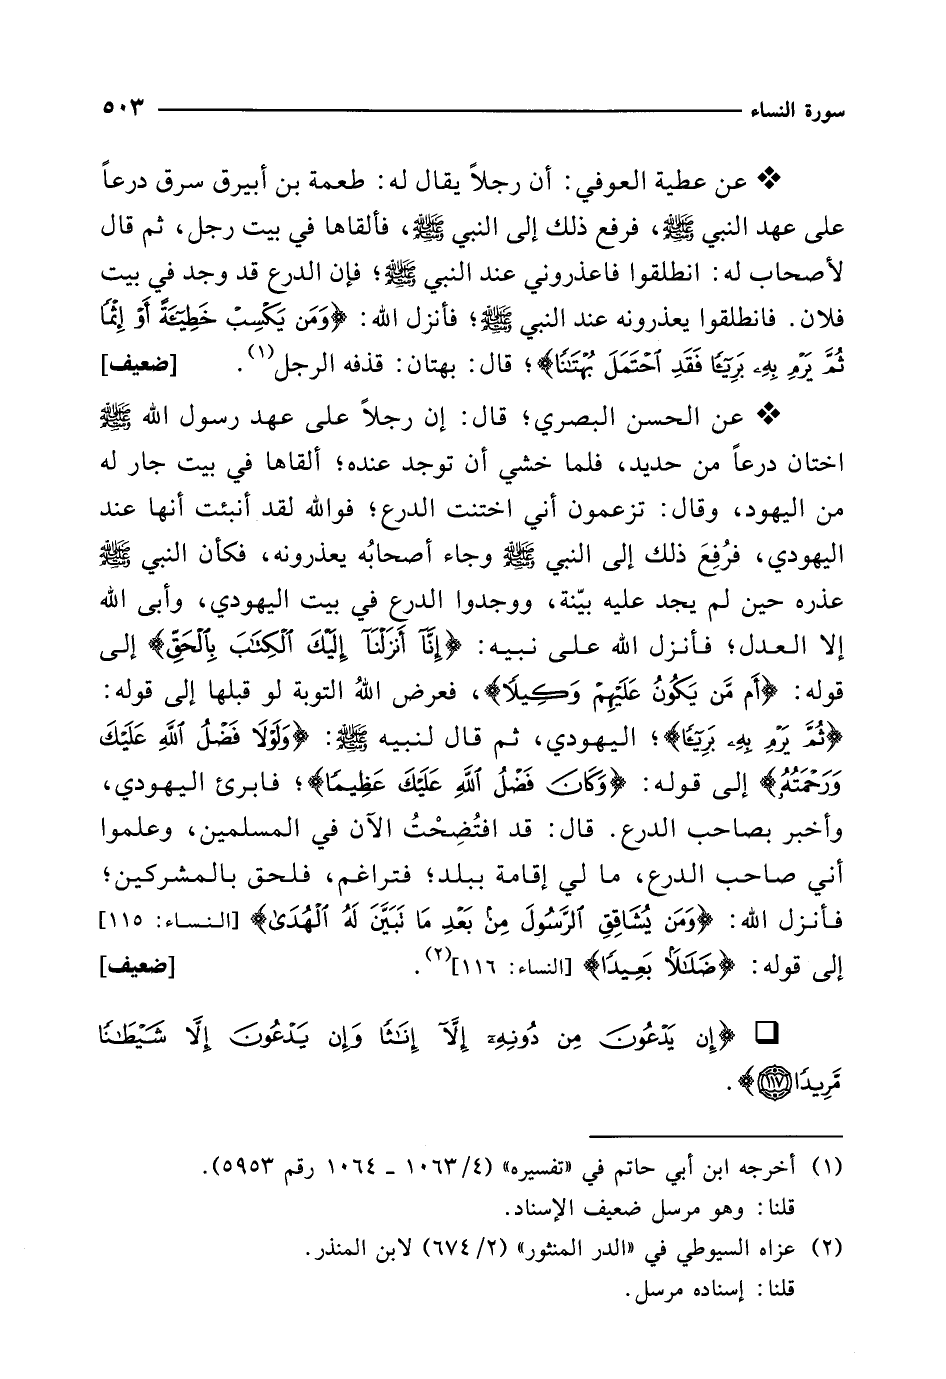 سورة النساء ٥٠٣
❖ عن عطية العوفي: أن رجلاً يقال له: طعمة بن أبيرق سرق درعاً
على عهد النبي ﷺ، فرفع ذلك إلى النبي ﷺ، فألقاها في بيت رجل، ثم قال
لأصحاب له: انطلقوا فاعذروني عند النبي ﷺ؛ فإن الدرع قد وجد في بيت
فلان. فانطلقوا يعذرونه عند النبي ﷺ؛ فأنزل الله: ﴿وَمَن يَكْسِبْ خَطِيٓـَٔةً أَوْ إِثْمًا
ثُمَّ يَرْمِ بِهِۦ بَرِيٓـًٔا فَقَدِ ٱحْتَمَلَ بُهْتَـٰنًا﴾؛ قال: بهتان: قذفه الرجل(١). [ضعيف]
❖ عن الحسن البصري؛ قال: إن رجلاً على عهد رسول الله ﷺ
اختان درعاً من حديد، فلما خشي أن توجد عنده؛ ألقاها في بيت جار له
من اليهود، وقال: تزعمون أني اختنت الدرع؛ فوالله لقد أنبئت أنها عند
اليهودي، فرُفِعَ ذلك إلى النبي ﷺ وجاء أصحابُه يعذرونه، فكأن النبي ﷺ
عذره حين لم يجد عليه بيّنة، ووجدوا الدرع في بيت اليهودي، وأبى الله
إلا العدل؛ فأنزل الله على نبيه: ﴿إِنَّآ أَنزَلْنَآ إِلَيْكَ ٱلْكِتَـٰبَ بِٱلْحَقِّ﴾ إلى
قوله: ﴿أَم مَّن يَكُونُ عَلَيْهِمْ وَكِيلًا﴾، فعرض اللهُ التوبة لو قبلها إلى قوله:
﴿ثُمَّ يَرْمِ بِهِۦ بَرِيٓـًٔا﴾؛ اليهودي، ثم قال لنبيه ﷺ: ﴿وَلَوْلَا فَضْلُ ٱللَّهِ عَلَيْكَ
وَرَحْمَتُهُۥ﴾ إلى قوله: ﴿وَكَانَ فَضْلُ ٱللَّهِ عَلَيْكَ عَظِيمًا﴾؛ فابرئ اليهودي،
وأخبر بصاحب الدرع. قال: قد افتُضِحْتُ الآن في المسلمين، وعلموا
أني صاحب الدرع، ما لي إقامة ببلد؛ فتراغم، فلحق بالمشركين؛
فأنزل الله: ﴿وَمَن يُشَاقِقِ ٱلرَّسُولَ مِنۢ بَعْدِ مَا تَبَيَّنَ لَهُ ٱلْهُدَىٰ﴾ [النساء: ١١٥]
إلى قوله: ﴿ضَلَـٰلًۢا بَعِيدًا﴾ [النساء: ١١٦](٢). [ضعيف]
❑ ﴿إِن يَدْعُونَ مِن دُونِهِۦٓ إِلَّآ إِنَـٰثًا وَإِن يَدْعُونَ إِلَّا شَيْطَـٰنًا
مَّرِيدًا ١١٧﴾.
(١) أخرجه ابن أبي حاتم في «تفسيره» (٤/ ١٠٦٣ ـ ١٠٦٤ رقم ٥٩٥٣).
قلنا: وهو مرسل ضعيف الإسناد.
(٢) عزاه السيوطي في «الدر المنثور» (٢/ ٦٧٤) لابن المنذر.
قلنا: إسناده مرسل.